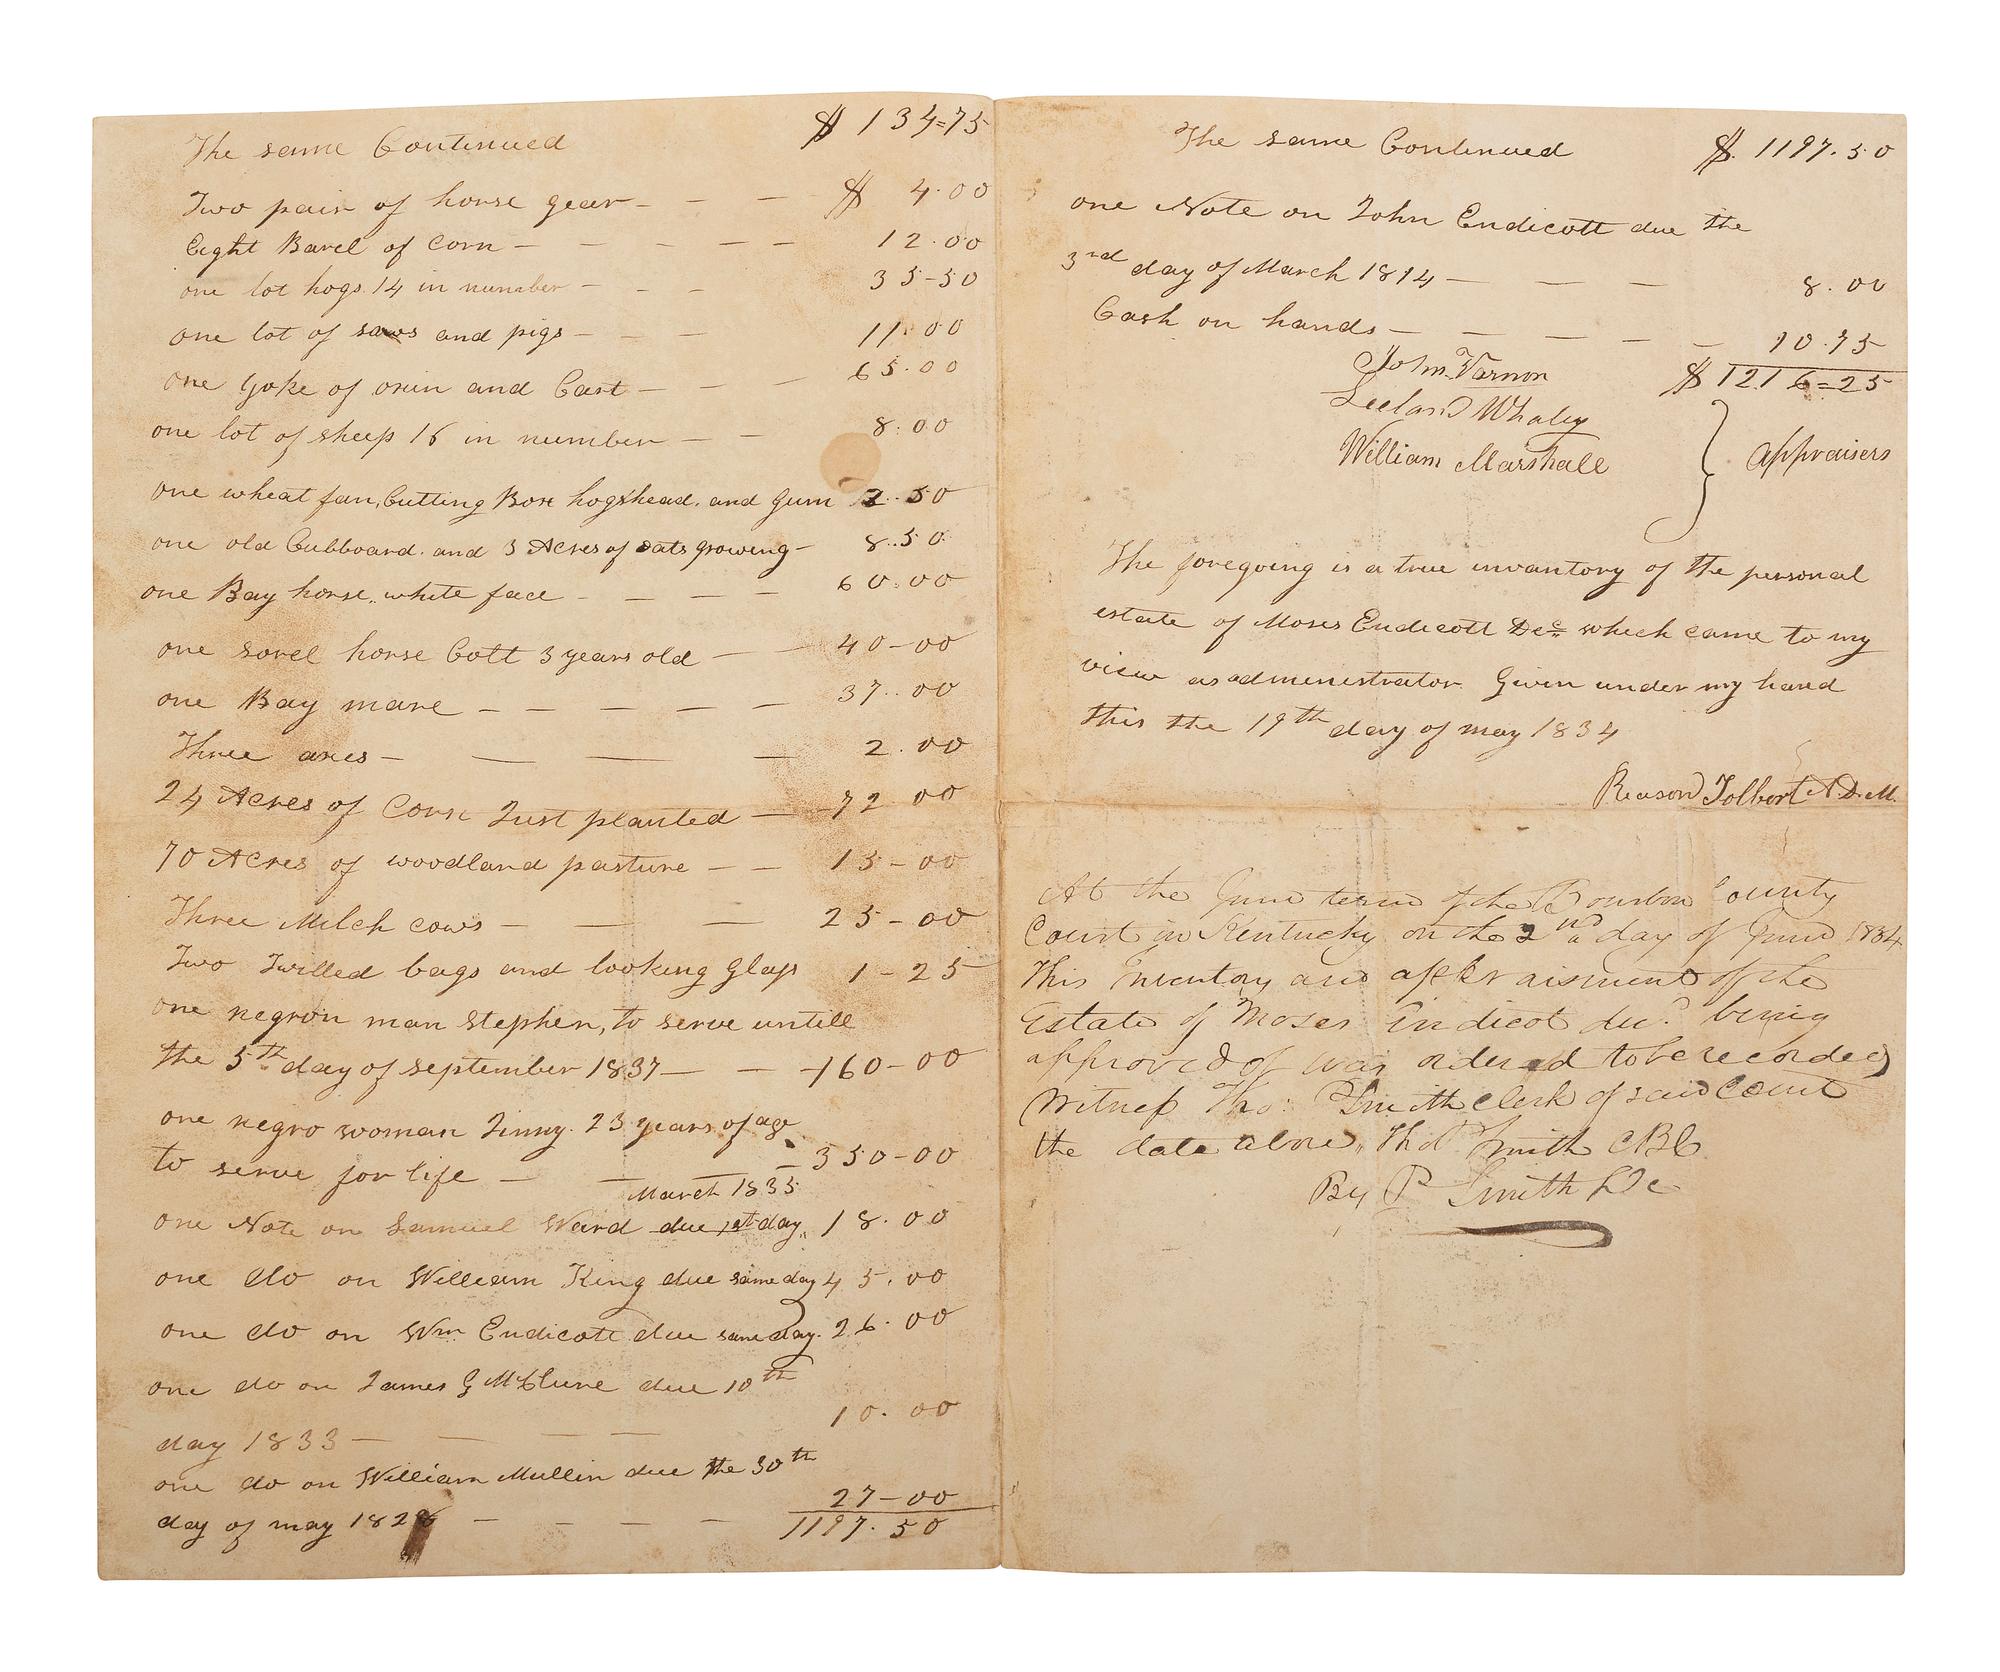 The same Continued $ 134=75
Two pair of horse gear - - - $ 4.00
Eight Barel of Corn - - - - - 12.00
one lot hogs 14 in number - - - 35-50
one lot of sows and pigs - - - 11.00
one Yoke of oxin and Cart - - - 65.00
one lot of sheep 16 in number - - 8.00
one wheat fan, Cutting Box hogshead. and Gum 2.50
one old Cubboard. and 3 Acres of oats growing - 8.50
one Bay horse, white face - - - - 60.00
one sorel horse Colt 3 years old - - 40-00
one Bay mare - - - - - 37.00
Three axes - - - - 2.00
24 Acres of Corn Just planted - 72 00
70 Acres of woodland pasture - - 15-00
Three Milch cows - - - 25-00
Two Twilled bags and looking Glass 1-25
one negron man Stephen, to serve untill
the 5th day of september 1837 - - 160-00
one negro woman Jinny. 23 years of age
to serve for life - - - 350-00
March 1835
one Note on Samuel Ward due 1st day, 18.00
one do on William King due same day 45.00
one do on Wm Endicott due same day. 26.00
one do on James G McClure due 10th
day 1833 - - - - 10.00
one do on William Mullin due the 30th
27-00
day of may 182 - - - -
1197.50
The same Continued $. 1197.50
one Note on John Endicott due the
3rd day of March 1814 - - - 8.00
Cash on hands - - - - - 10.75
John Varnon $ 1216=25
Leeland Whaley
William Marshall } appraisers
The foregoing is a true invantory of the personal
estate of Moses Endicott Decs which came to my
view as administrator. Given under my hand
this the 19th day of may 1834
Reason Tolbert A.D.M.
At the June term of the Bourbon County
Court in Kentucky on the 2nd day of June 1834
This Inventory and appraisment of the
Estate of Moses Endicot decd. being
approved of was ordered to be recorded
Witness Tho: P Smith clerk of said Court
the date above, Tho P Smith CBC
By P Smith Dc